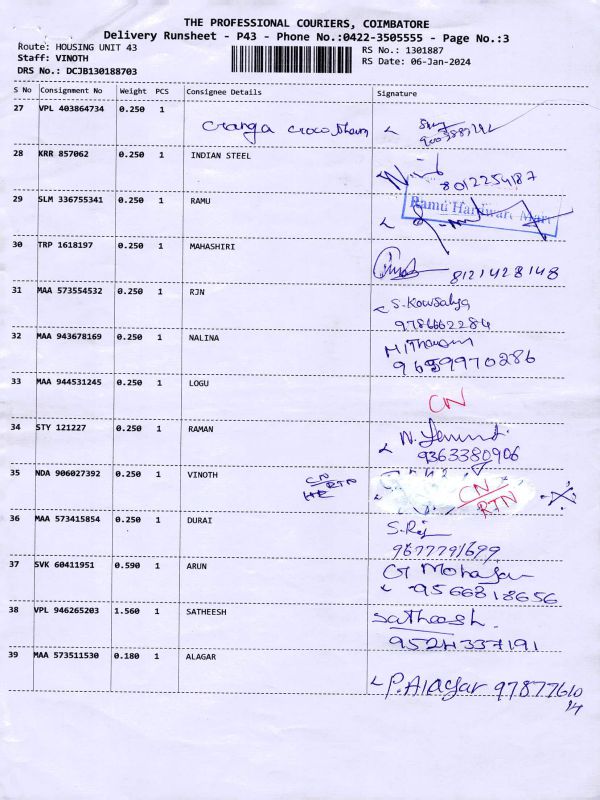 THE PROFESSIONAL COURIERS, COIMBATORE
Delivery Runsheet - P43 - Phone No.:0422-3505555 - Page No.:3
Route: HOUSING UNIT 43
Staff: VINOTH
DRS No.: DCJB130188703
RS No.: 1301887
RS Date: 06-Jan-2024
S No Consignment No Weight PCS Consignee Details Signature
27 VPL 403864734 0.250 1
28 KRR 857062 0.250 1 INDIAN STEEL
8012254187
29 SLM 336755341 0.250 1 RAMU
Ramu Hardware Mart
30 TRP 1618197 0.250 1 MAHASHIRI
8121428148
31 MAA 573554532 0.250 1 RJN S. Kowsalya
9786662284
32 MAA 943678169 0.250 1 NALINA
9659970286
33 MAA 944531245 0.250 1 LOGU CN
34 STY 121227 0.250 1 RAMAN
9363380906
35 NDA 906027392 0.250 1 VINOTH CN RTN CN
RTN
36 MAA 573415854 0.250 1 DURAI S. Raj
9677791699
37 SVK 60411951 0.590 1 ARUN
9566818656
38 VPL 946265203 1.560 1 SATHEESH Satheesh.
9524337191
39 MAA 573511530 0.180 1 ALAGAR
P. Alagar 97877610
14